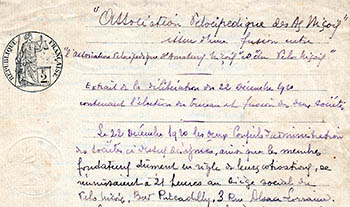 "Association Vélocipédique des Af. Niçois"
issue d'une fusion entre
"l'Association Vélocipédique d'Amateurs Niçois" et le Vélo Niçois"
Extrait de la délibération du 22 Décembre 1920
contenant l'élection du bureau et fusion des deux sociétés
RÉPUBLIQUE FRANÇAISE
2
Le 22 Décembre 1920 les deux Conseils d'administration
des sociétés ci dessus désignées, ainsi que les membres
fondateurs dûment en règle de leurs cotisations, se
réunissaient à 21 heures au siège social du
Vélo Niçois, Bar Piccadilly, 3 Rue Alsace-Lorraine.